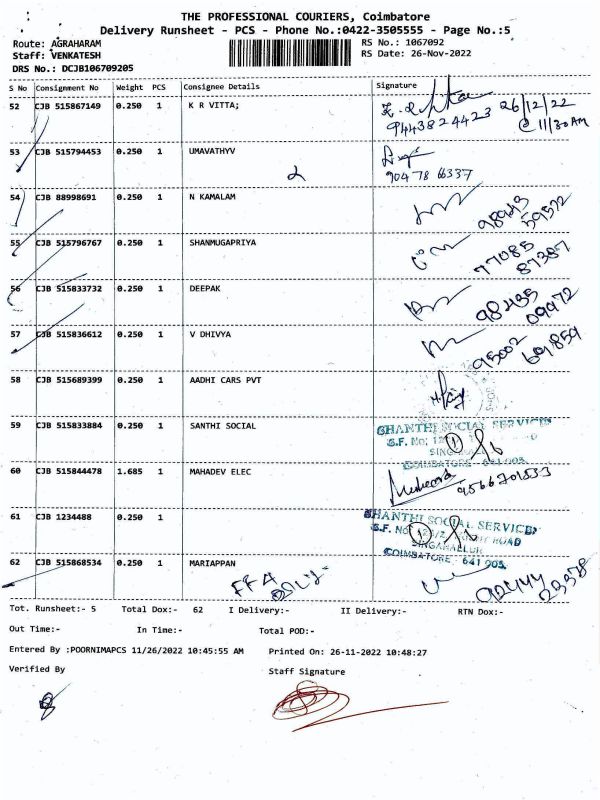 THE PROFESSIONAL COURIERS, Coimbatore
Delivery Runsheet - PCS - Phone No.:0422-3505555 - Page No.:5
Route: AGRAHARAM RS No.: 1067092
Staff: VENKATESH RS Date: 26-Nov-2022
DRS No.: DCJB106709205
S No Consignment No Weight PCS Consignee Details Signature
52 CJB 515867149 0.250 1 K R VITTA; 26/12/22
9443824423 @ 11/30 AM
53 CJB 515794453 0.250 1 UMAVATHYV
2 904 78 66337
54 CJB 88998691 0.250 1 N KAMALAM
55 CJB 515796767 0.250 1 SHANMUGAPRIYA
77085
87387
56 CJB 515833732 0.250 1 DEEPAK
98435
09972
57 CJB 515836612 0.250 1 V DHIVYA
95002
691859
58 CJB 515689399 0.250 1 AADHI CARS PVT
59 CJB 515833884 0.250 1 SANTHI SOCIAL
SHANTHI SOCIAL SERVICES
S.F. No:
COIMBATORE - 641 005.
60 CJB 515844478 1.685 1 MAHADEV ELEC
61 CJB 1234488 0.250 1
SHANTHI SOCIAL SERVICES
S.F. No ROAD
SINGANALLUR
COIMBATORE - 641 005.
62 CJB 515868534 0.250 1 MARIAPPAN
Tot. Runsheet:- 5 Total Dox:- 62 I Delivery:- II Delivery:- RTN Dox:-
Out Time:- In Time:- Total POD:-
Entered By :POORNIMAPCS 11/26/2022 10:45:55 AM Printed On: 26-11-2022 10:48:27
Verified By Staff Signature